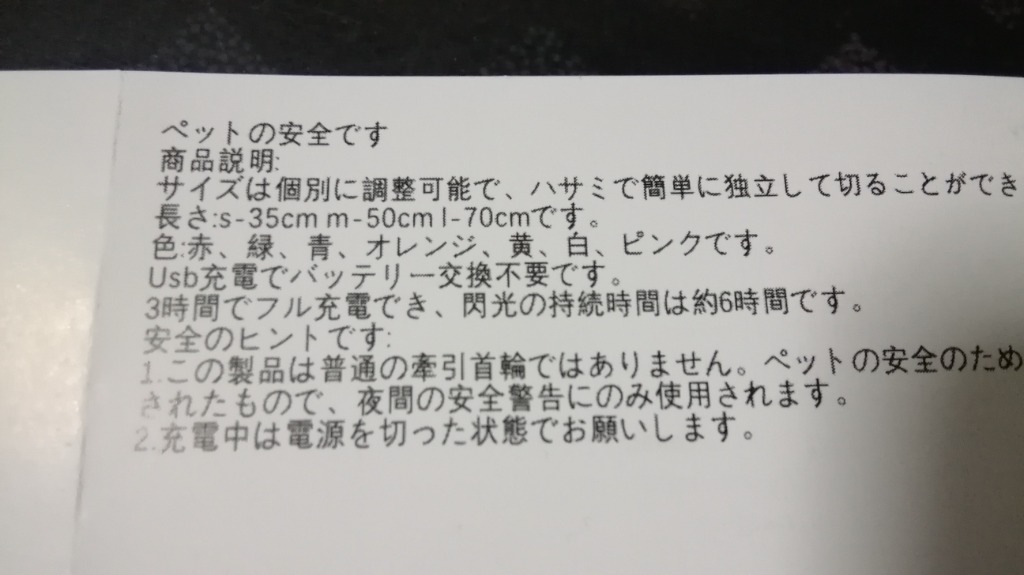 ペットの安全です
商品説明:
サイズは個別に調整可能で、ハサミで簡単に独立して切ることができ
長さ:s-35cm m-50cm l-70cmです。
色:赤、緑、青、オレンジ、黄、白、ピンクです。
Usb充電でバッテリー交換不要です。
3時間でフル充電でき、閃光の持続時間は約6時間です。
安全のヒントです:
1.この製品は普通の牽引首輪ではありません。ペットの安全のため
されたもので、夜間の安全警告にのみ使用されます。
2.充電中は電源を切った状態でお願いします。